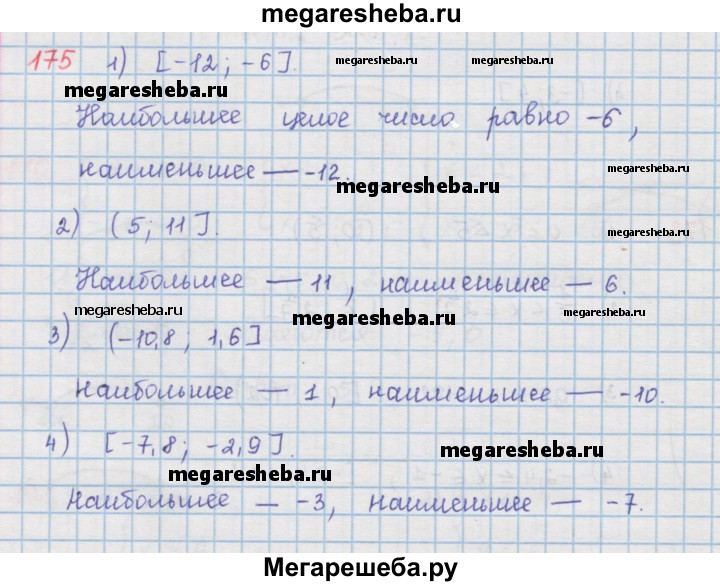 megaresheba.ru
175 1) [-12; -6]. megaresheba.ru megaresheba.ru
megaresheba.ru
Наибольшее целое число равно -6,
наименьшее — -12.
megaresheba.ru
2) (5; 11]. megaresheba.ru
Наибольшее — 11, наименьшее — 6.
megaresheba.ru megaresheba.ru megaresheba.ru
3) (-10,8; 1,6]
Наибольшее — 1, наименьшее — -10.
4) [-7,8; -2,9].
megaresheba.ru
megaresheba.ru
Наибольшее — -3, наименьшее — -7.
Мегарешеба.ру